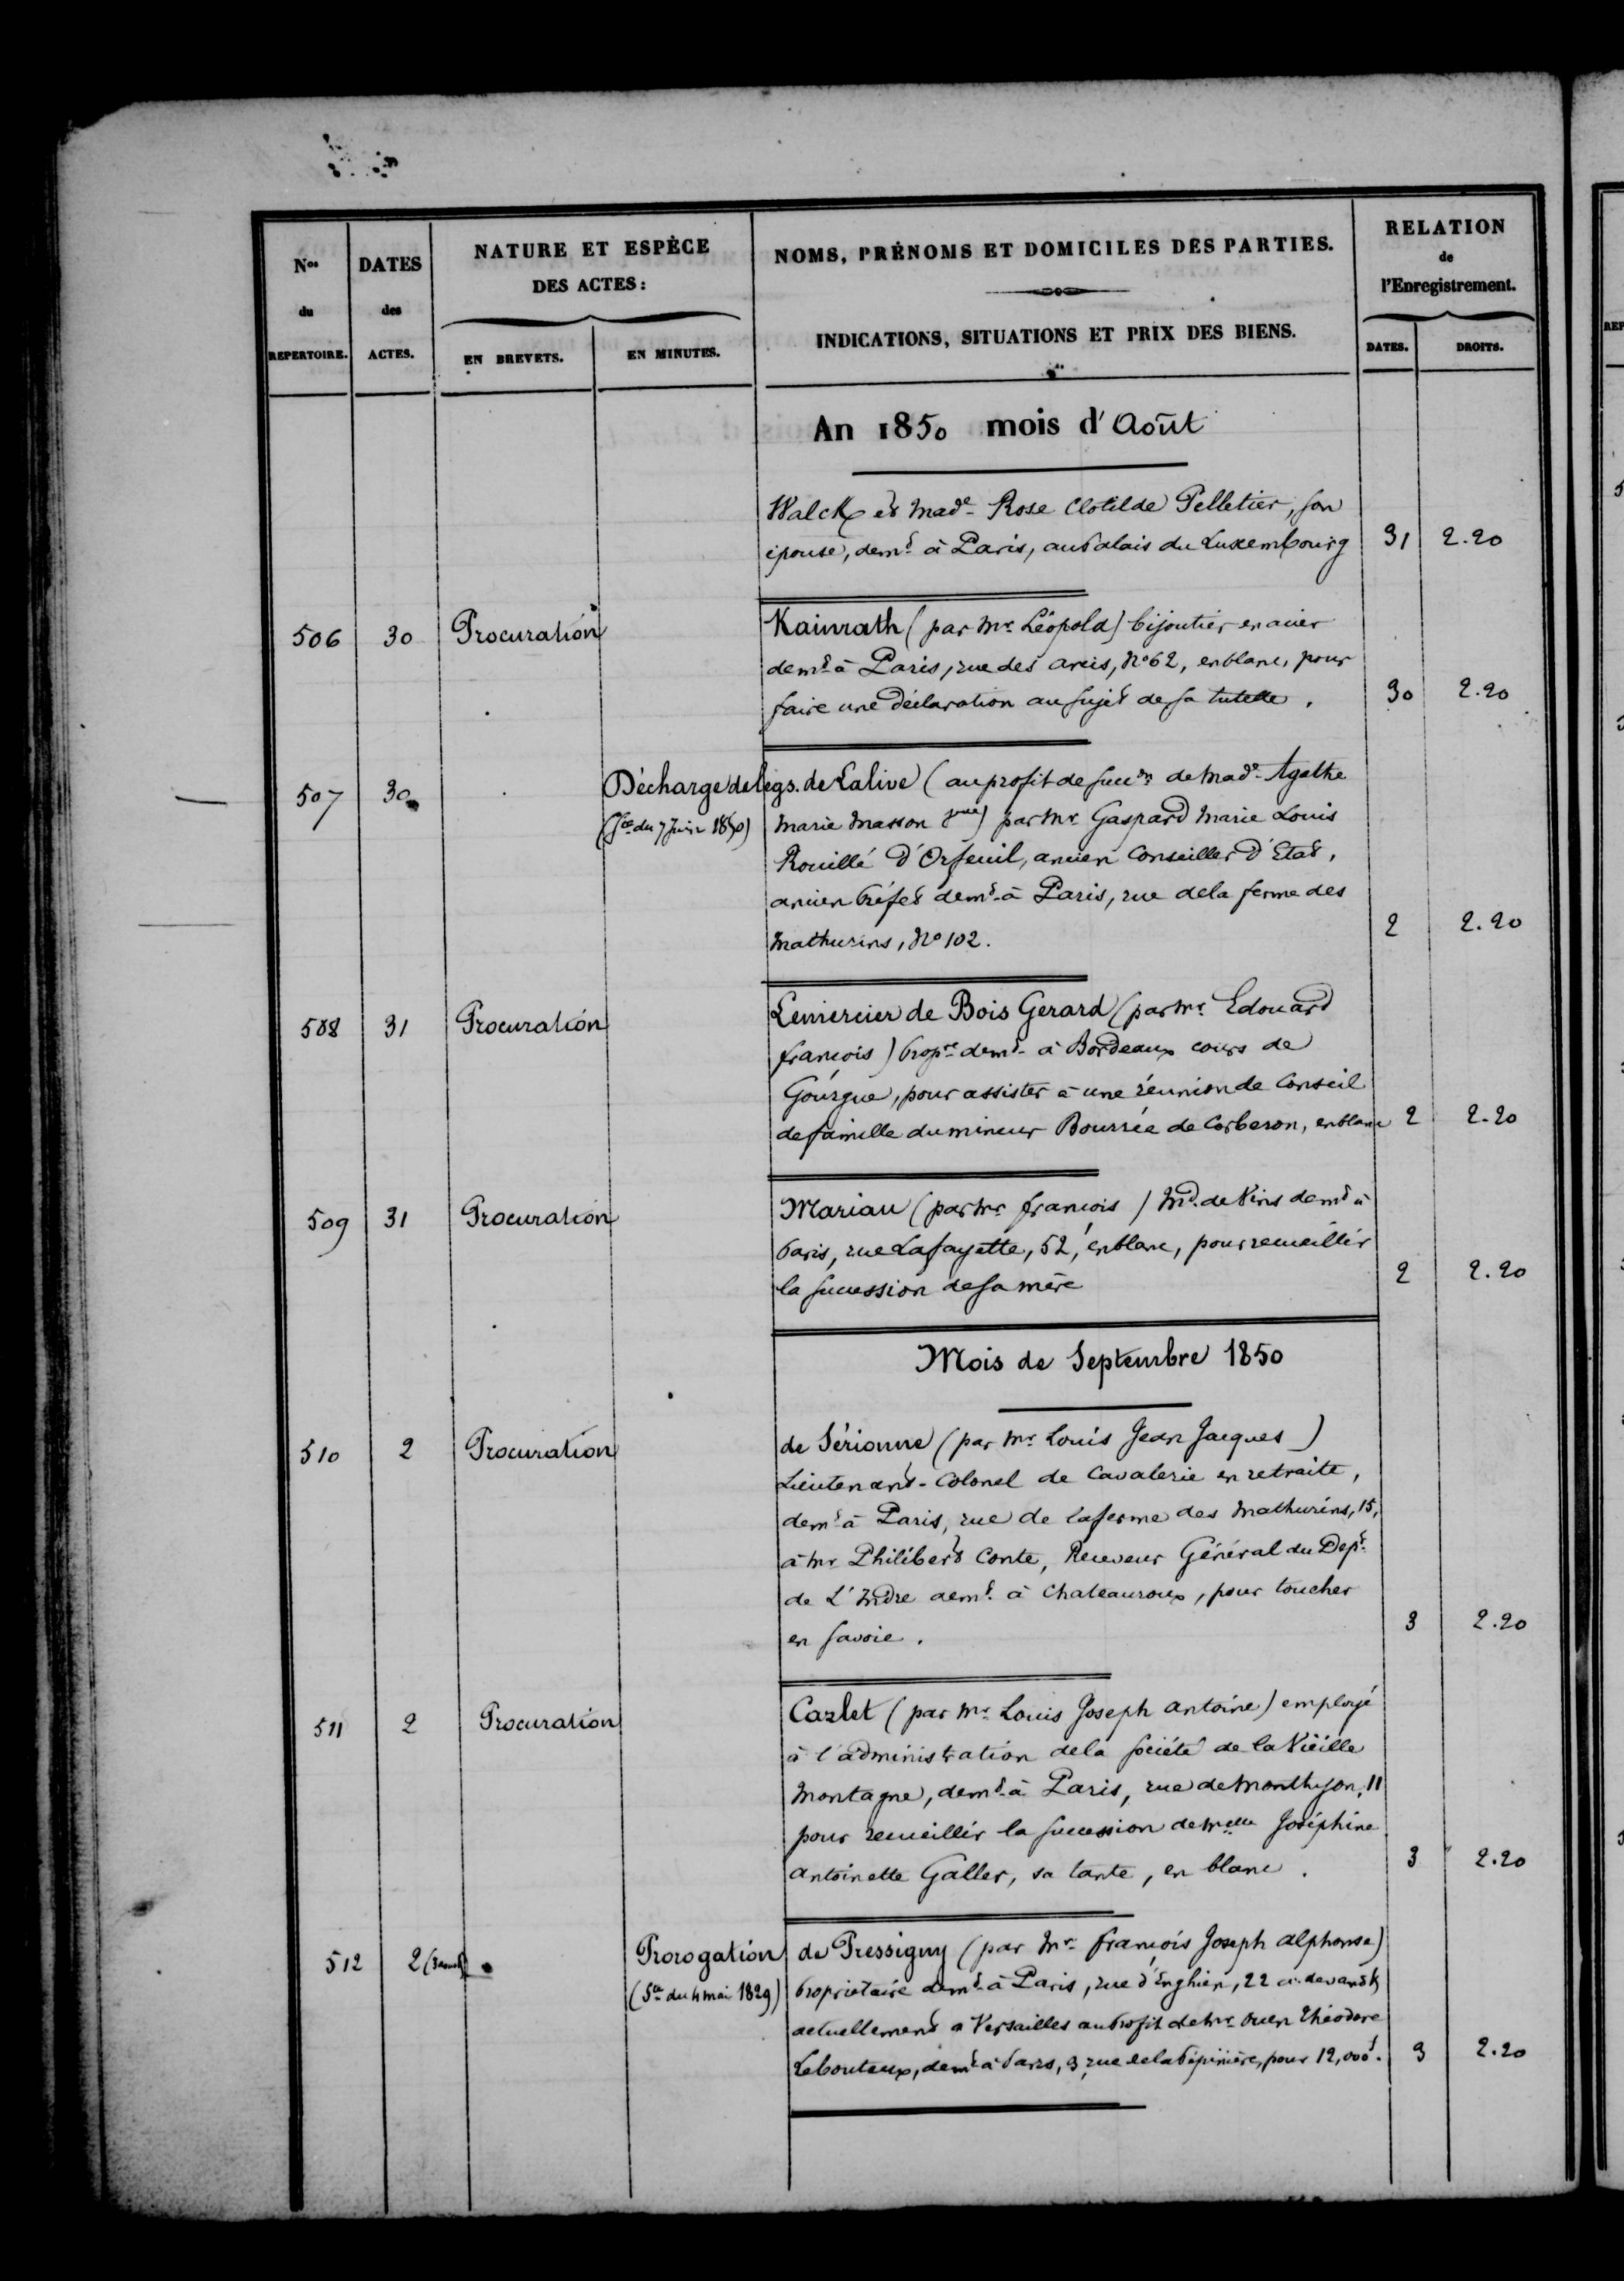 Nos du REPERTOIRE.
DATES des ACTES.
NATURE ET ESPÈCE
DES ACTES:
EN BREVETS.
EN MINUTES.
NOMS, PRÉNOMS ET DOMICILES DES PARTIES.
INDICATIONS, SITUATIONS ET PRIX DES BIENS.
RELATION
de
l'Enregistrement.
DATES.
DROITS.
An 1850 mois d'Août
Walck et Made Rose Clotilde Pelletier, son
épouse, demt à Paris, au Palais du Luxembourg 31 2.20
506 30 Procuration Kainrath (par Mr Léopold) bijoutier en acier
demt à Paris, rue des arcis, No 62, en blanc, pour
faire une déclaration au sujet de sa tutelle. 30 2.20
507 30 Décharge de legs. de Lalive (au profit de succon de Made Agathe
(Sce du 7 Juin 1850) Marie Masson Vve) par Mr Gaspard Marie Louis
Rouillé d'Orfeuil, ancien Conseiller d'Etat,
ancien Préfet demt à Paris, rue de la ferme des
Mathurins, No 102. 2 2.20
508 31 Procuration Lemercier de Bois Gerard (par Mr Edouard
françois) Propre demt à Bordeaux cours de
Gourgue, pour assister à une réunion de Conseil
de famille du mineur Bourrée de Corberon, en blanc 2 2.20
509 31 Procuration Mariau (par Mr françois) Md de Vins demt à
Paris, rue Lafayette, 52, en blanc, pour recueillir
la succession de sa mère 2 2.20
Mois de Septembre 1850
510 2 Procuration de Sérionne (par Mr Louis Jean Jacques)
Lieutenant-Colonel de Cavalerie en retraite,
demt à Paris, rue de la ferme des Mathurins, 15,
à Mr Philibert Conte, Receveur Général du Dept
de L'Indre demt à Chateauroux, pour toucher
en Savoie. 3 2.20
511 2 Procuration Carlet (par Mr Louis Joseph Antoine) employé
à l'administration de la Société de la Vieille
Montagne, demt à Paris, rue de Monthyon, 11
pour recueillir la succession de Melle Joséphine
Antoinette Galler, sa tante, en blanc. 3 2.20
512 2 Prorogation de Pressigny (par Mr françois Joseph alphonse)
(Sce du 4 mai 1829) Propriétaire demt à Paris, rue d'Enghien, 22 ci-devant &
actuellement à Versailles au Profit de Mr Ouen Théodore
Lebouteux, demt à Paris, 3, rue de la Pépinière, pour 12,000f. 3 2.20